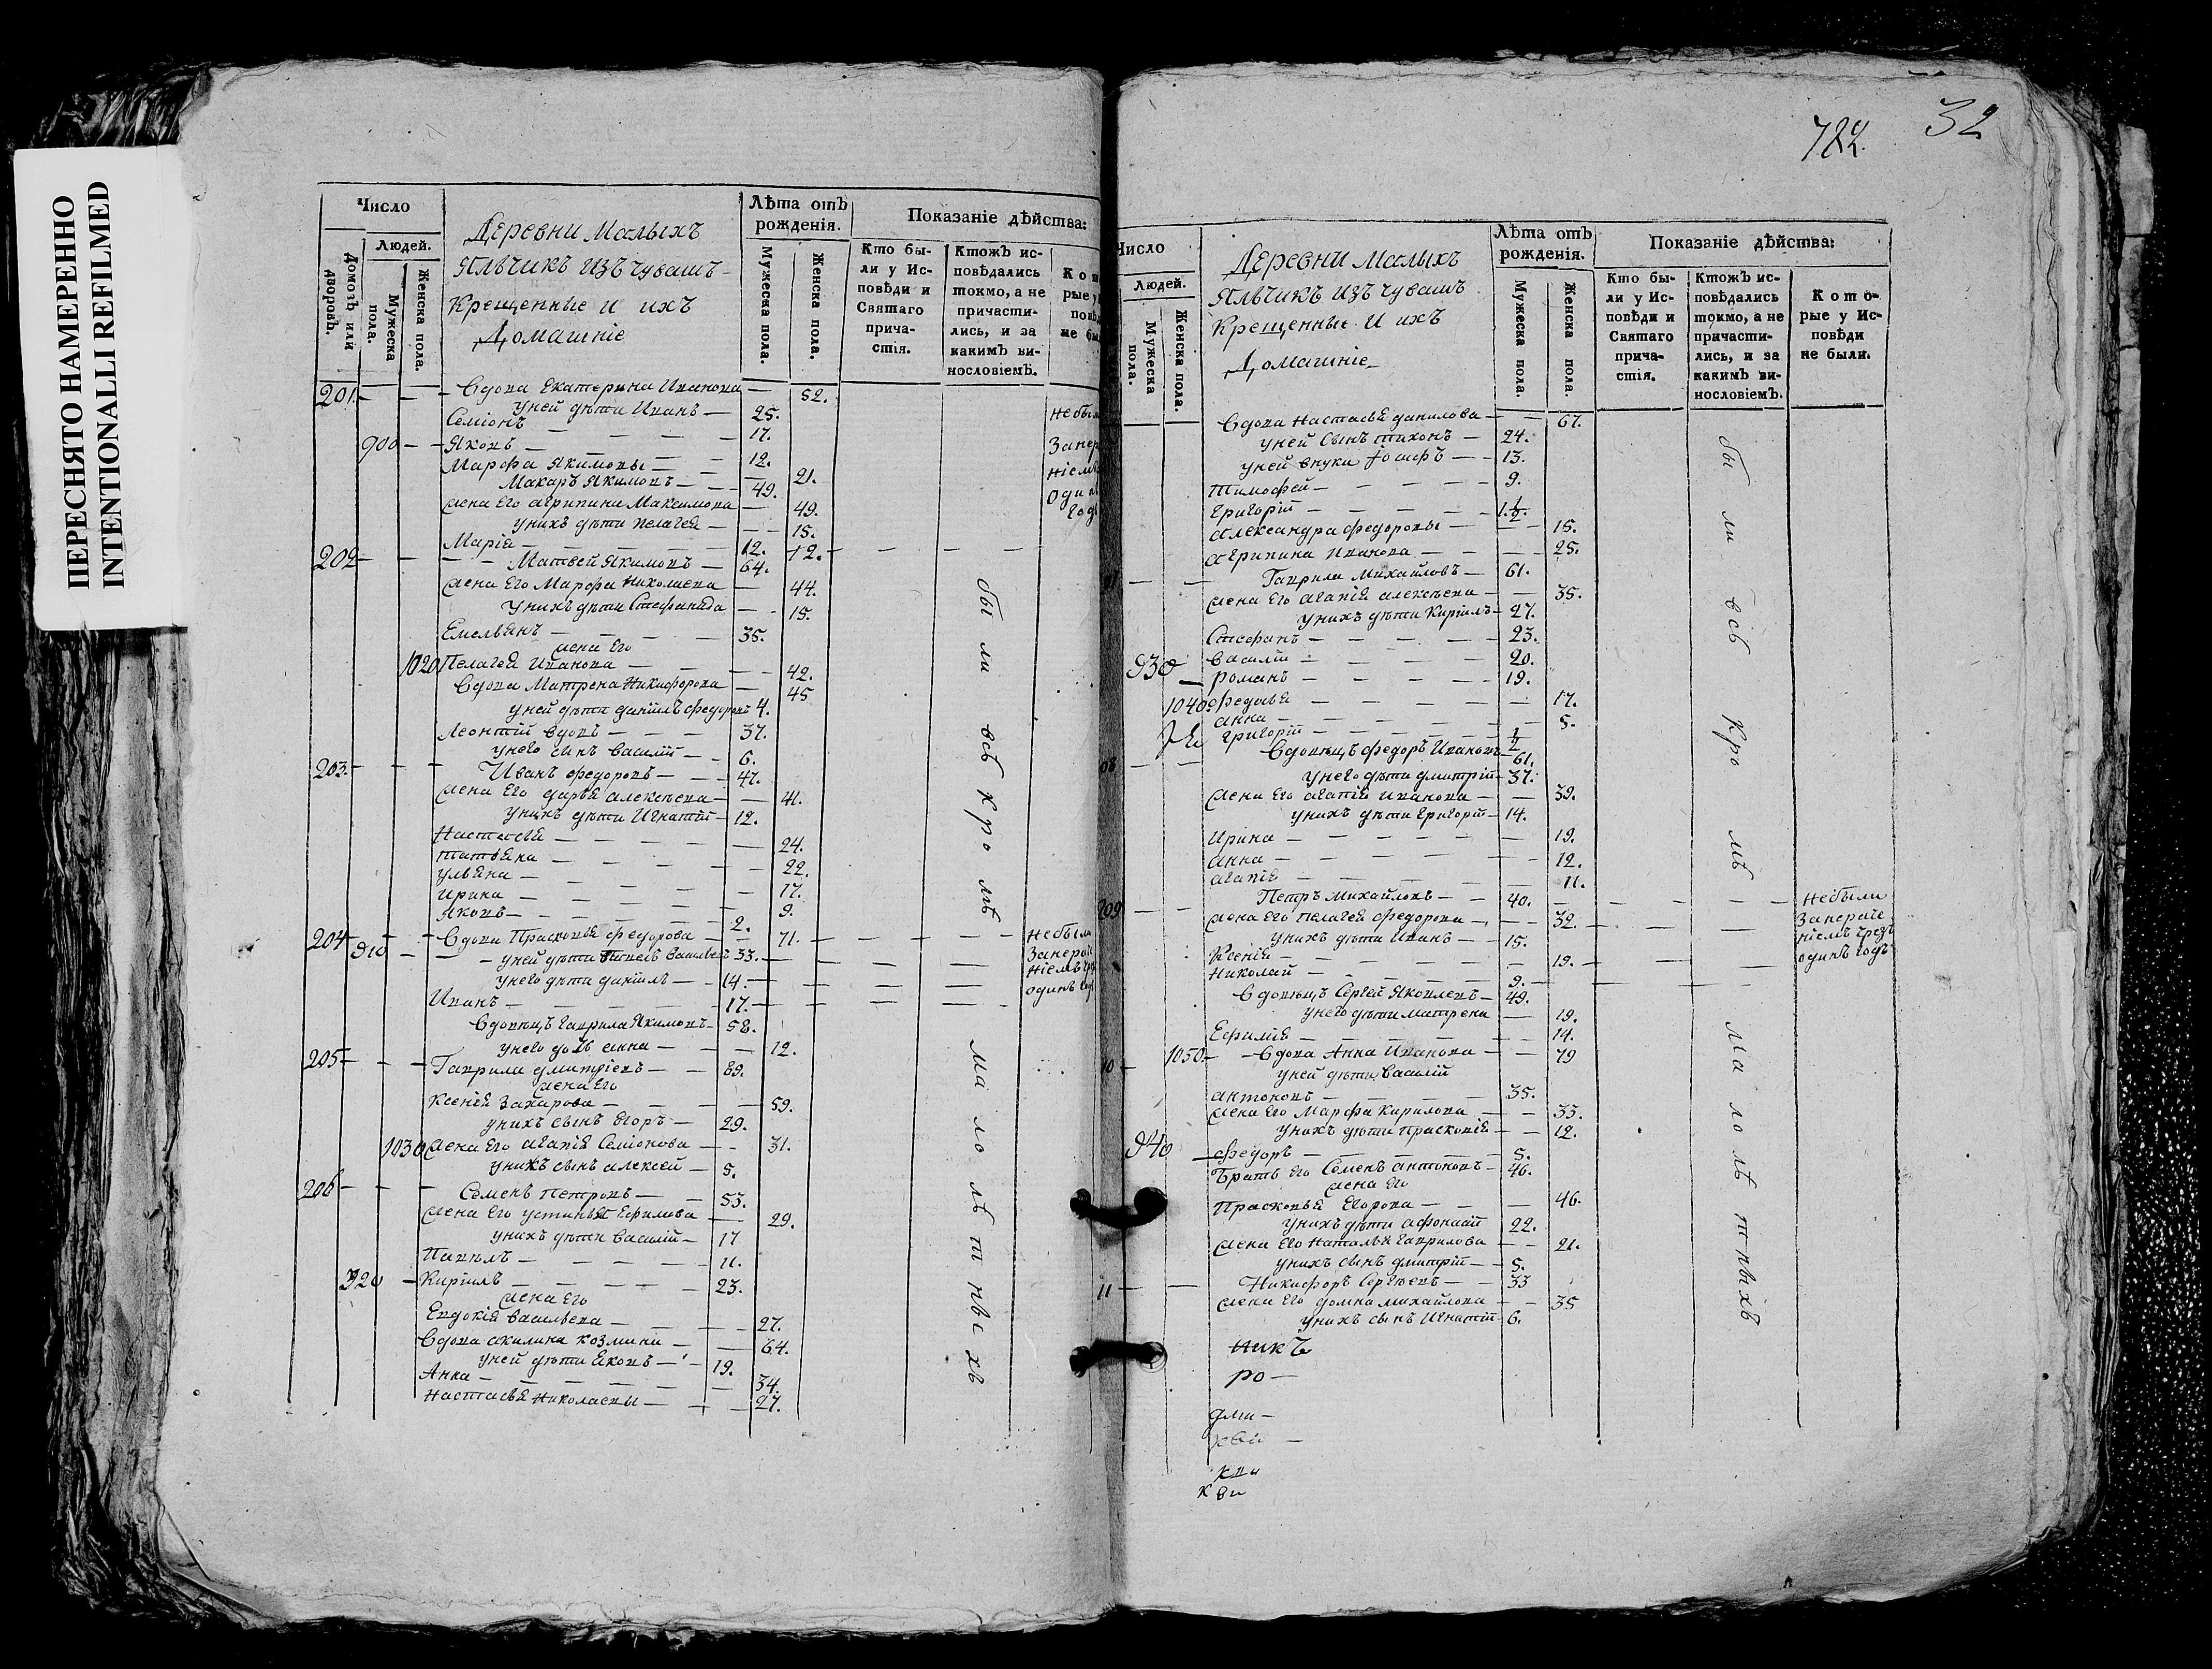 ПЕРЕСНЯТО НАМЕРЕННО
INTENTIONALLI REFILMED
Число
Домовъ или дворовъ.
Людей.
Мужеска пола.
Женска пола.
Деревни Малыхъ
Яльчикъ изъ чувашъ
крещенные и ихъ
Домашніе
Лѣта отъ рождения.
Мужеска пола.
Женска пола.
Показаніе дѣйства:
Кто бы-
ли у Ис-
повѣди и
Святаго
прича-
стія.
Ктожъ ис-
повѣдались
токмо, а не
причасти-
лись, и за
какимъ ви-
нословіемъ.
201 Вдова Екатерина Иванова 52.
уней дѣти Иванъ 25.
Семіонъ 17.
900 Яковъ 12.
Марфа Якимовы 21.
Макаръ Якимовъ 49.
жена Его агрипина Максимова 49.
унихъ дѣти Пелагея 15.
Марія 12. 12.
202 Матвей Якимовъ 64.
жена Его Марфа Николаева 44.
унихъ дѣти Стефанида 15.
Емельянъ 35.
жена Его
1020 Пелагея Иванова 42.
Вдова Матрена Никифорова 45
уней дѣти даніилъ федоровъ 4.
Леонтій вдовъ 37.
унего сынъ василій 6.
203 Иванъ федоровъ 47.
жена Его дарья алексѣева 41.
унихъ дѣти Игнатій 12.
Настасья 24.
татьяна 22.
ульяна 17.
ирина 9.
Яковъ 2.
204 Вдова Прасковья федорова 71.
910 уней дѣти васильевъ 33.
унего дѣти даніилъ 14.
Иванъ 17.
Вдовецъ гаврила Якимовъ 58.
унего дочь анна 12.
205 Гаврила дмитріевъ 89.
жена Его
ксенія Захарова 59.
унихъ сынъ Егоръ 29.
1030 жена Его агапія Семіонова 31.
унихъ сынъ алексей 5.
206 Семенъ Петровъ 53.
жена Его устинья Ефимова 29.
унихъ дѣти василій 17
Павелъ 11.
920 Киріилъ 23.
жена Его
Евдокія васильева 27.
Вдова акилина козмина 64.
уней дѣти Яковъ 19.
Анна 34.
Настасья Николаевы 27.
были всѣ кромѣ малолѣтныхъ
небыли
одинъ
722. 32
Число
Людей.
Мужеска пола.
Женска пола.
Деревни Малыхъ
Яльчикъ изъ чувашъ
крещенные и ихъ
Домашніе
Лѣта отъ рождения.
Мужеска пола.
Женска пола.
Показаніе дѣйства:
Кто бы-
ли у Ис-
повѣди и
Святаго
прича-
стія.
Ктожъ ис-
повѣдались
токмо, а не
причасти-
лись, и за
какимъ ви-
нословіемъ.
Кото-
рые у Ис-
повѣди
не были.
Вдова Настасья данилова 67.
уней сынъ тихонъ 24.
уней внуки іосифъ 13.
Тимофей 9.
григорій 1½.
александра федоровы 15.
агрипина Иванова 25.
Гаврила Михайловъ 61.
жена Его агапія алексѣева 35.
унихъ дѣти Кирилъ 27.
Стефанъ 23.
930 василій 20.
романъ 19.
1040 федосья 17.
анна 5.
григорій ½
08 Вдовецъ федоръ Ивановъ 61.
унего дѣти дмитрій 37.
жена Его агапія иванова 39.
унихъ дѣти григорій 14.
Ирина 19.
анна 12.
агапія 11.
209 Петръ Михайловъ 40.
жена Его пелагея федорова 32.
унихъ дѣти Иванъ 15.
Ксенія 19.
Николай 9.
Вдовецъ Сергей Яковлевъ 49.
унего дѣти матрена 19.
Ефимія 14.
10 1050 Вдова Анна Иванова 79
уней дѣти василій
антоновъ 35.
жена Его Марфа Кирилова 33.
унихъ дѣти прасковія 12.
940 федоръ 5.
Братъ Его Семенъ антоновъ 46.
жена Его
Прасковья Егорова 46.
унихъ дѣти афонасій 22.
жена Его Наталья гаврилова 21.
унихъ сынъ дмитрій 5.
11 Никифоръ Сергѣевъ 33
жена Его домна михайлова 35
унихъ сынъ Игнатій 6.
никъ
ро
были всѣ кромѣ малолѣтныхъ
небыли
чрезъ
одинъ годъ